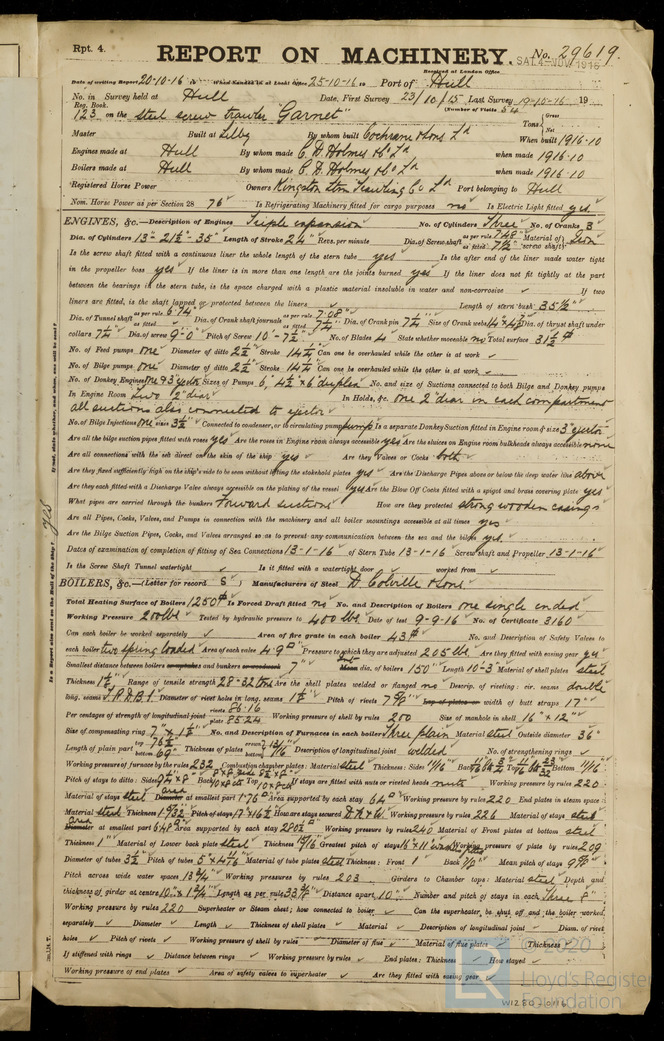 Rpt. 4.
REPORT ON MACHINERY. No. 29619.
SAT. 4-NOV. 1916
Received at London Office
Date of writing Report 20-10-16 When handed in at Local Office 25-10-16 Port of Hull
No. in Survey held at Hull Date, First Survey 23/10/15 Last Survey 19-10-16 19
Reg. Book. (Number of Visits 54
123 on the steel screw trawler "Garnet" Tons Gross Net
Master Built at Selby By whom built Cochrane & Sons Ld When built 1916-10
Engines made at Hull By whom made C. D. Holmes & Co Ld when made 1916-10
Boilers made at Hull By whom made C. D. Holmes & Co Ld when made 1916-10
Registered Horse Power Owners Kingston Stm Trawling Co Ld Port belonging to Hull
Nom. Horse Power as per Section 28 76 Is Refrigerating Machinery fitted for cargo purposes no Is Electric Light fitted yes
ENGINES, &c.—Description of Engines Triple expansion No. of Cylinders Three No. of Cranks 3
Dia. of Cylinders 13"-21½"-35" Length of Stroke 24" Revs. per minute Dia. of Screw shaft as per rule 7.48" as fitted 7½" Material of screw shaft Iron
Is the screw shaft fitted with a continuous liner the whole length of the stern tube yes Is the after end of the liner made water tight
in the propeller boss yes If the liner is in more than one length are the joints burned yes If the liner does not fit tightly at the part
between the bearings in the stern tube, is the space charged with a plastic material insoluble in water and non-corrosive If two
liners are fitted, is the shaft lapped or protected between the liners Length of stern bush 35½"
Dia. of Tunnel shaft as per rule 6.74" as fitted Dia. of Crank shaft journals as per rule 7.08" as fitted 7¼" Dia. of Crank pin 7¼" Size of Crank webs Dia. of thrust shaft under
collars 7¼" Dia. of screw 9'-0" Pitch of Screw 10'-7½" No. of Blades 4 State whether moveable no Total surface 31½
No. of Feed pumps one Diameter of ditto 2½" Stroke 14¼" Can one be overhauled while the other is at work
No. of Bilge pumps one Diameter of ditto 2½" Stroke 14¼" Can one be overhauled while the other is at work
No. of Donkey Engines one & 3" ejector Sizes of Pumps 6", 4½" x 6" duplex No. and size of Suctions connected to both Bilge and Donkey pumps
In Engine Room Two 2" diar In Holds, &c. one 2" diar in each compartment
all suctions also connected to ejector
No. of Bilge Injections one sizes 3½" Connected to condenser, or to circulating pump pump Is a separate Donkey Suction fitted in Engine room & size 3" ejector
Are all the bilge suction pipes fitted with roses yes Are the roses in Engine room always accessible yes Are the sluices on Engine room bulkheads always accessible none
Are all connections with the sea direct on the skin of the ship yes Are they Valves or Cocks both
Are they fixed sufficiently high on the ship's side to be seen without lifting the stokehold plates yes Are the Discharge Pipes above or below the deep water line above
Are they each fitted with a Discharge Valve always accessible on the plating of the vessel yes Are the Blow Off Cocks fitted with a spigot and brass covering plate yes
What pipes are carried through the bunkers Forward suctions How are they protected strong wooden casings
Are all Pipes, Cocks, Valves, and Pumps in connection with the machinery and all boiler mountings accessible at all times yes
Are the Bilge Suction Pipes, Cocks, and Valves arranged so as to prevent any communication between the sea and the bilges yes
Dates of examination of completion of fitting of Sea Connections 13-1-16 of Stern Tube 13-1-16 Screw shaft and Propeller 13-1-16
Is the Screw Shaft Tunnel watertight Is it fitted with a watertight door worked from
BOILERS, &c.—(Letter for record S) Manufacturers of Steel D. Colville & Sons
Total Heating Surface of Boilers 1250 Is Forced Draft fitted no No. and Description of Boilers one single ended
Working Pressure 200 lbs Tested by hydraulic pressure to 400 lbs Date of test 9-9-16 No. of Certificate 3160
Can each boiler be worked separately Area of fire grate in each boiler 43 No. and Description of Safety Valves to
each boiler two spring loaded Area of each valve 4.9 Pressure to which they are adjusted 205 lbs Are they fitted with easing gear yes
Smallest distance between boilers or uptakes and bunkers or woodwork 7" Mean dia. of boilers 150" Length 10-3" Material of shell plates steel
Thickness Range of tensile strength 28-32 tons Are the shell plates welded or flanged no Descrip. of riveting: cir. seams double
long. seams T.R.D.B.S. Diameter of rivet holes in long. seams Pitch of rivets 7⅞" Lap of plates or width of butt straps 17"
Per centages of strength of longitudinal joint rivets 86.16 plate 85.24 Working pressure of shell by rules 200 Size of manhole in shell 16" x 12"
Size of compensating ring No. and Description of Furnaces in each boiler Three plain Material steel Outside diameter 36"
Length of plain part top 76½" bottom 69" Thickness of plates crown bottom Description of longitudinal joint welded No. of strengthening rings
Working pressure of furnace by the rules 232 Combustion chamber plates: Material steel Thickness: Sides 11/16" Back Top Bottom 11/16"
Pitch of stays to ditto: Sides Back Top If stays are fitted with nuts or riveted heads nuts Working pressure by rules 220
Material of stays steel area at smallest part 1.76 Area supported by each stay 64 Working pressure by rules 220 End plates in steam space:
Material steel Thickness Pitch of stays 17" x 16½" How are stays secured D.N.&W. Working pressure by rules 226 Material of stays steel
area at smallest part Area supported by each stay 280½ Working pressure by rules 240 Material of Front plates at bottom steel
Thickness 1" Material of Lower back plate steel Thickness Greatest pitch of stays Working pressure of plate by rules 209
Diameter of tubes 3½ Pitch of tubes Material of tube plates steel Thickness: Front 1" Back Mean pitch of stays
Pitch across wide water spaces Working pressures by rules 203 Girders to Chamber tops: Material steel Depth and
thickness of girder at centre Length as per rule Distance apart 10" Number and pitch of stays in each Three 8"
Working pressure by rules 220 Superheater or Steam chest; how connected to boiler Can the superheater be shut off and the boiler worked
separately Diameter Length Thickness of shell plates Material Description of longitudinal joint Diam. of rivet
holes Pitch of rivets Working pressure of shell by rules Diameter of flue Material of flue plates Thickness
If stiffened with rings Distance between rings Working pressure by rules End plates: Thickness How stayed
Working pressure of end plates Area of safety valves to superheater Are they fitted with easing gear
Is a Report also sent on the Hull of the Ship? yes
If not, state whether, and when, one will be sent?
© 2020
Lloyd's Register
Foundation
W1280-0116